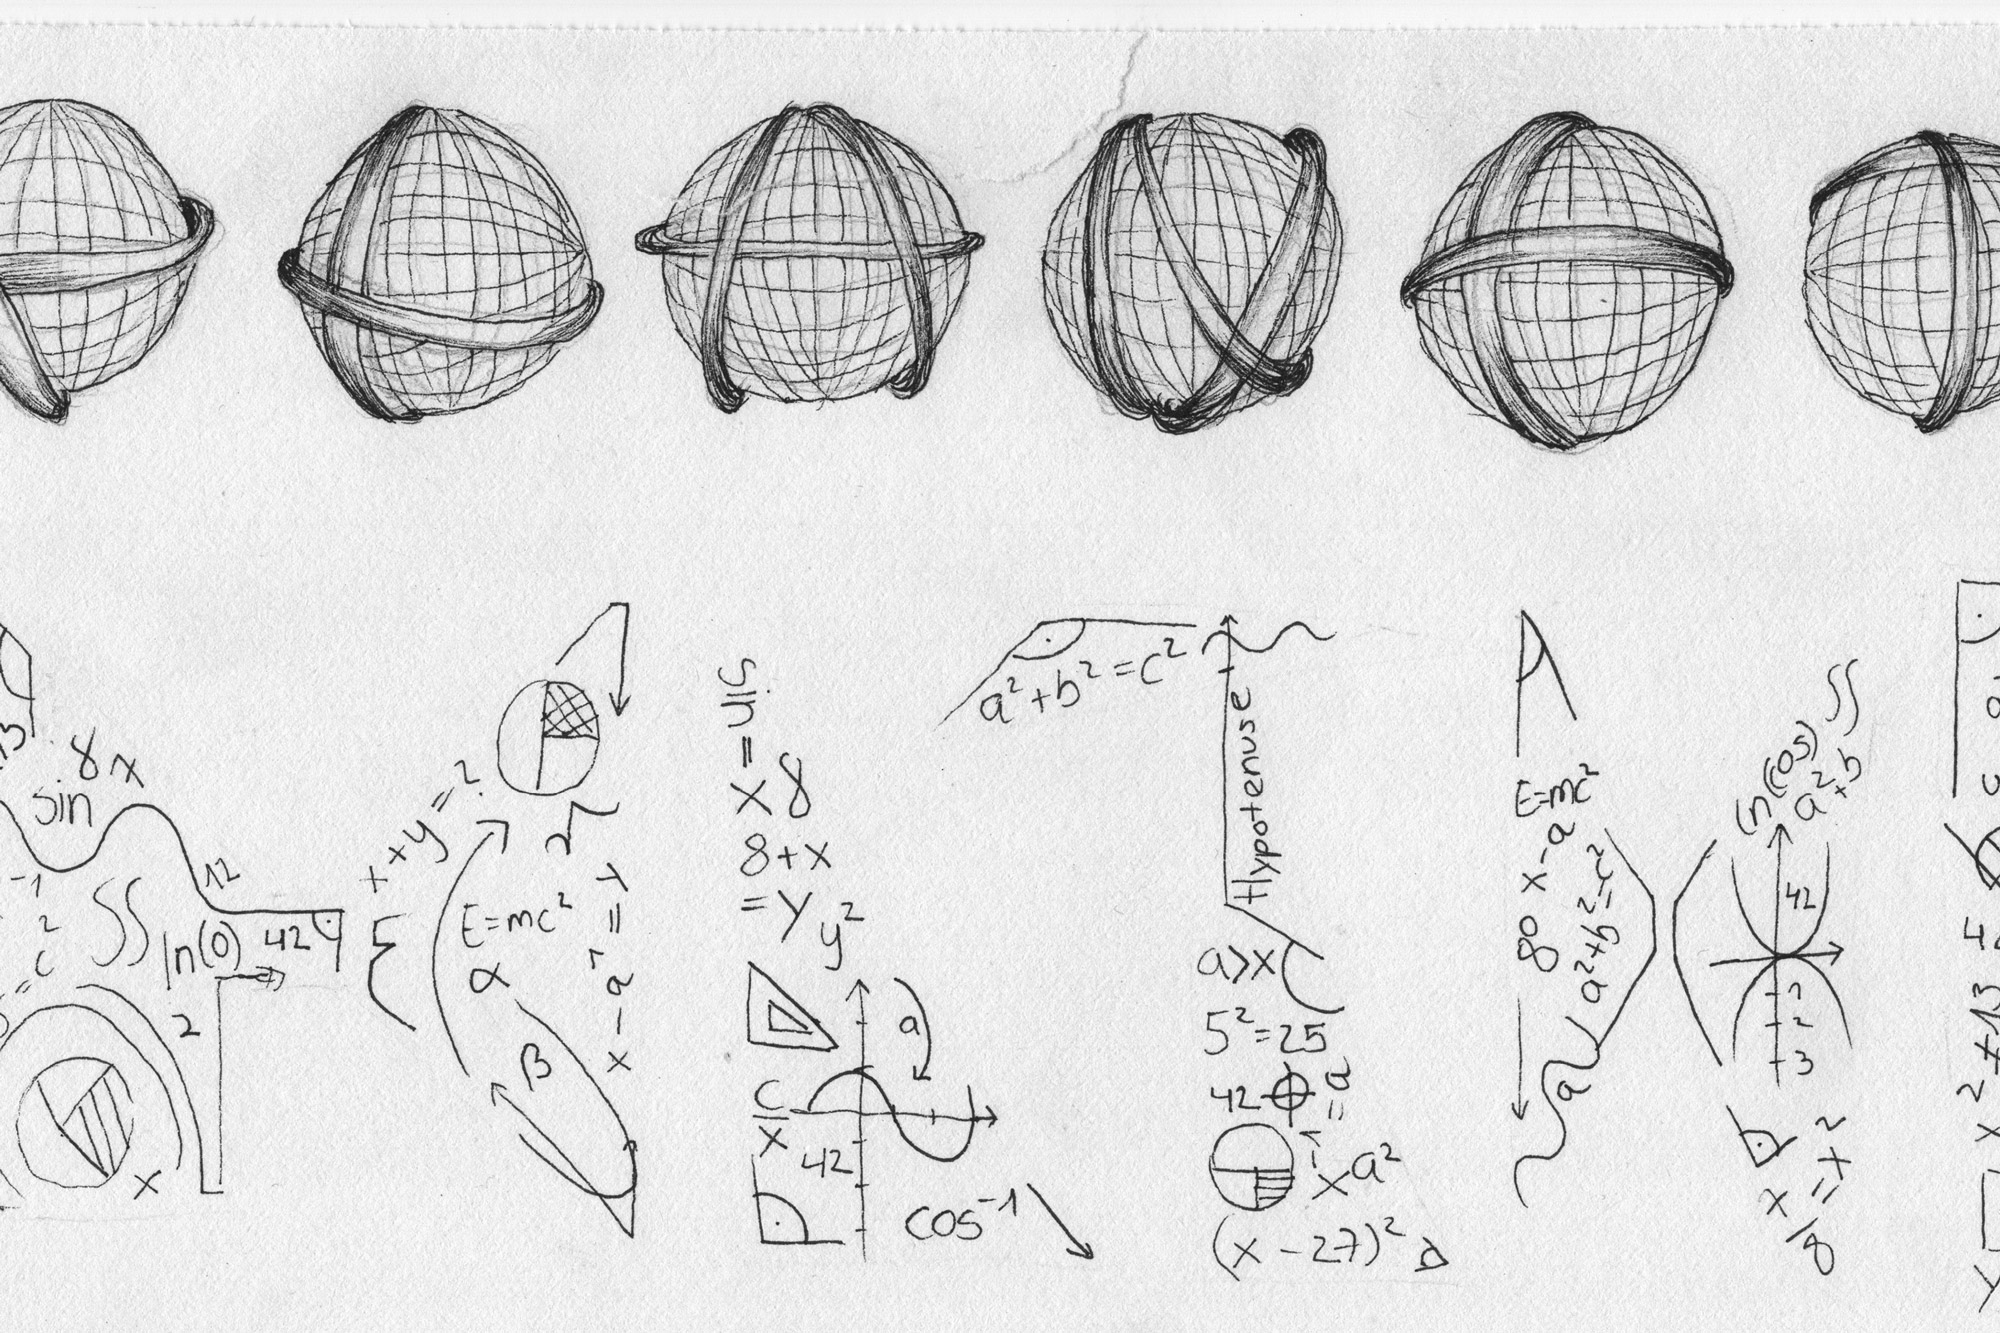 8x
sin
12
-1
2
= c
∬
ln(0)
42
2
x
x+y=?
√
E=mc²
α
β
x-a⁻¹=y
x=sin
8
8+x
=y
y²
a
c/x
42
cos⁻¹
a²+b²=c²
Hypotenuse
a>x
5²=25
42
=a
x
a²
(x-27)²
E=mc²
80 x-a
a²+b²=c²
a
ln(cos)
∬
a²+b
42
2
3
x/8=x²
x²+13